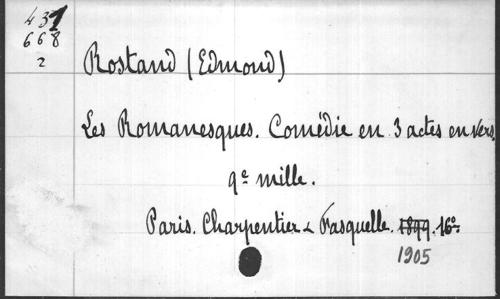 431
668
2
Rostand (Edmond)
Les Romanesques. Comédie en 3 actes en vers,
9e mille.
Paris. Charpentier & Fasquelle. 1899. 16°.
1905